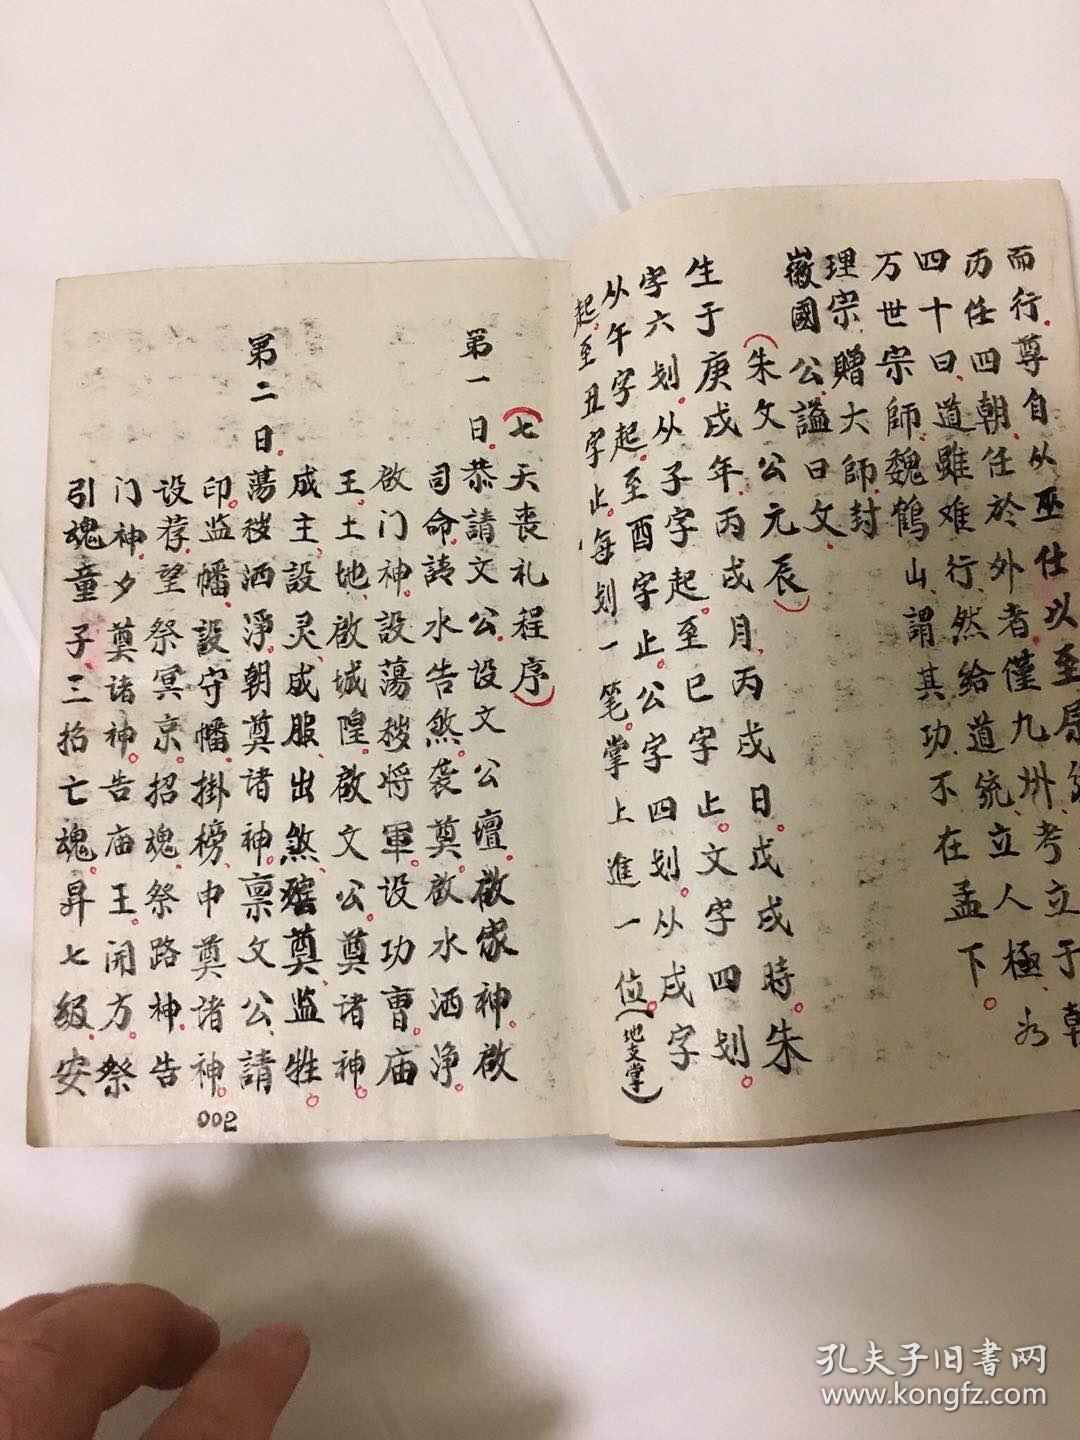 而行尊自从巫仕以至
历任四朝任於外者僅九州考立于朝
四十日道雖难行然给道统立人極为
万世宗師魏鶴山謂其功不在孟下
理宗贈大師封
徽國公謚曰文
(朱文公元辰)
生于庚戌年丙戌月丙戌日戊戌時朱
字六划从子字起至巳字止文字四划
从午字起至酉字止公字四划从戌字
起至丑字止每划一笔掌上進一位(地支掌)
(七天丧礼程序)
第一日恭請文公设文公壇啟家神啟
司命請水告煞袭奠啟水洒净
啟门神設蕩穢将軍设功曹庙
王土地啟城隍啟文公奠诸神
成主設灵成服出煞殯奠监牲
第二日蕩穢洒淨朝奠诸神禀文公請
印监幡設守幡掛榜申奠诸神
设荐望祭冥京招魂祭路神告
门神夕奠诸神告庙王開方祭
引魂童子三招亡魂昇七級安
002
孔夫子旧書网
www.kongfz.com